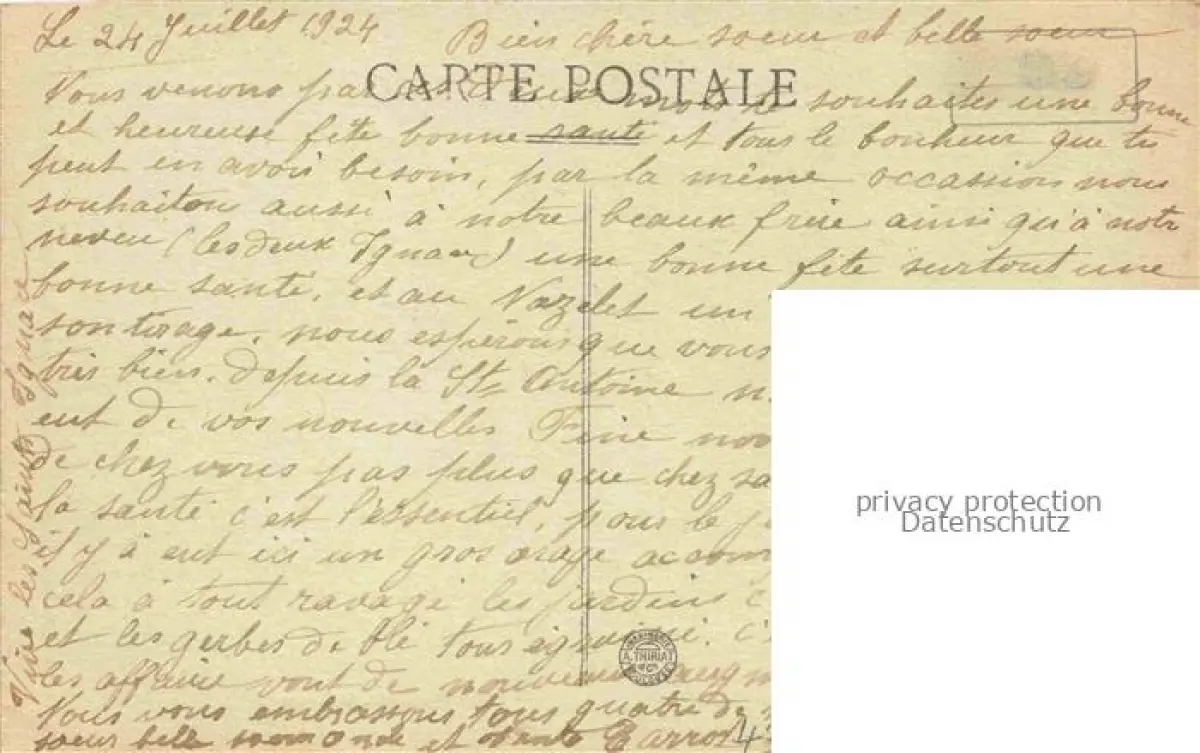 Le 24 Juillet 1924 Bien chère soeur et belle soeur
CARTE POSTALE
Nous venons par souhaites une bonne
et heureuse fête bonne santé et tous le bonheur que tu
peut en avoir besoin, par la même occassion nous
souhaiton aussi à notre beaux frère ainsi qu'à notr
neveu (les deux Ignace) une bonne fête surtout une
bonne santé, et au Nazelet un
son tirage, nous espérons que vous
très bien. depuis la St Antoine n
eut de vos nouvelles Fine nou
de chez vous pas plus que chez sa
la santé c'est l'essentiel, pous le j
il y à eut ici un gros orage accom
cela à tout ravagé les jardins c
et les gerbes de blé tous égrainé. c'
les affaire vont de nouveau augm
Nous vous embrassons tous quatre de
soeur belle soeur et Barrot 4
Vive les Saints Ignace
IMPRIMERIE
A. THIRIAT
& Cie
privacy protection
Datenschutz